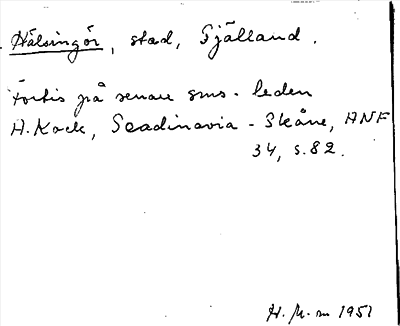 Hälsingör, stad, Själland.
Fortis på senare sms-leden
A. Kock, Scadinavia - Skåne, ANF
34, s. 82.
1951